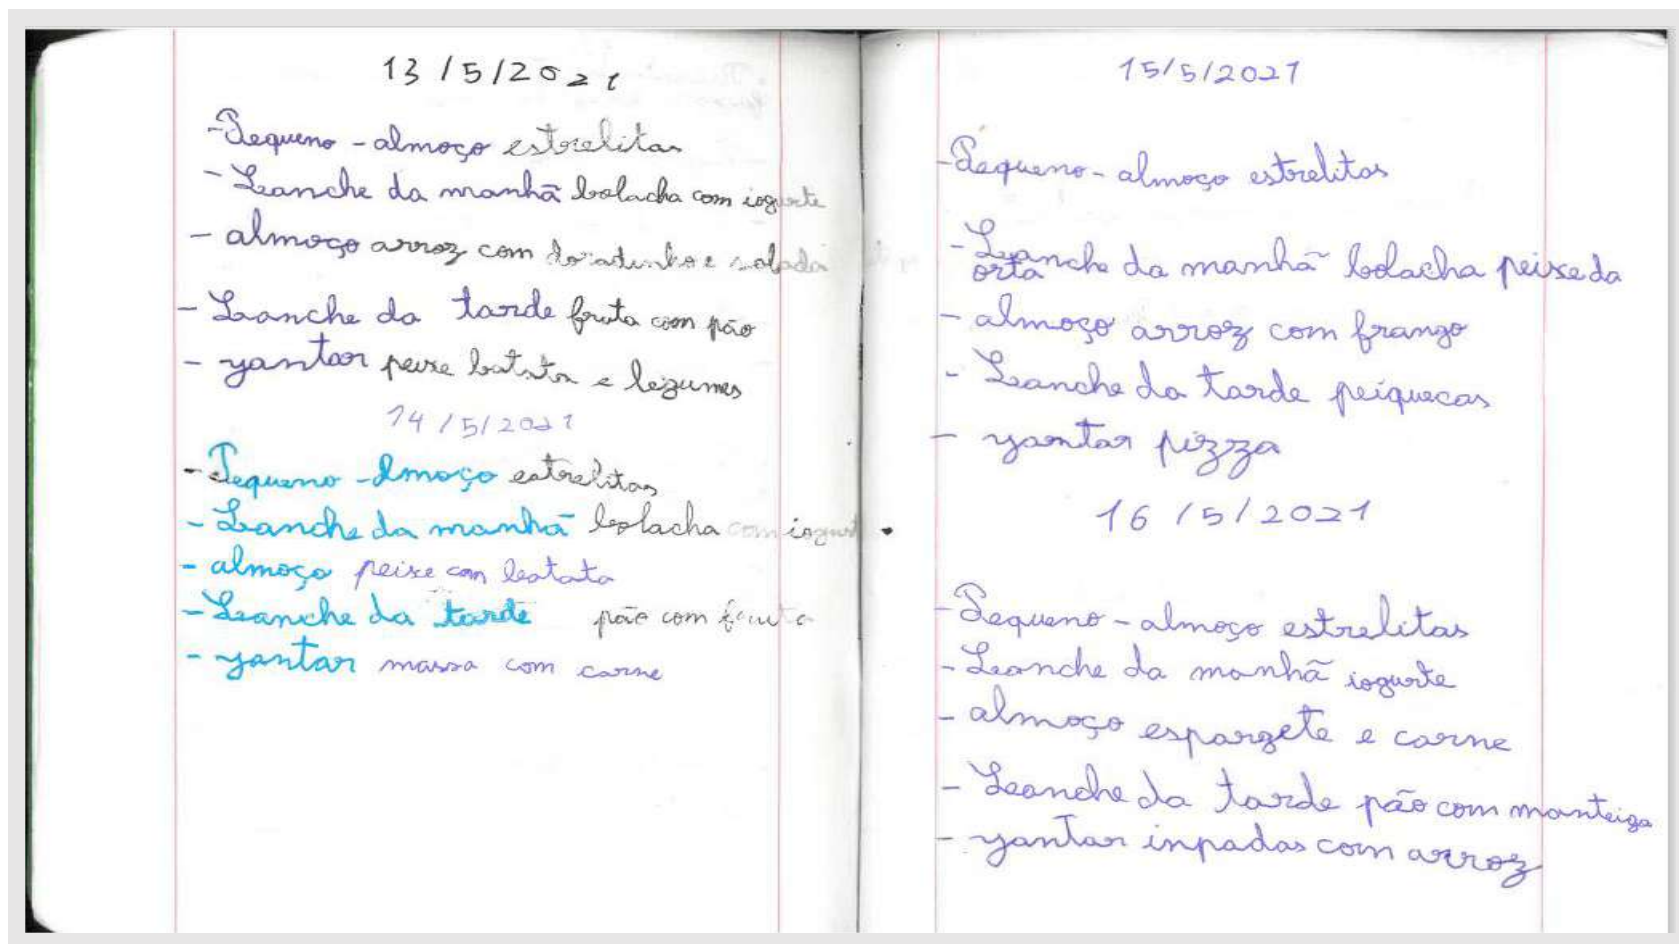 13/5/2021
-Pequeno-almoço estrelitas
- Lanche da manhã bolacha com iogurte
- almoço arroz com doradinho e salada
- Lanche da tarde fruta com pão
- yantar peixe batata e legumes
14/5/2021
- Pequeno-almoço estrelitas
- Lanche da manhã bolacha com iogurt
- almoço peixe com batata
- Lanche da tarde pão com fruta
- yantar massa com carne
15/5/2021
-Pequeno-almoço estrelitas
-Lanche da manhã bolacha peixe da
orta
- almoço arroz com frango
- Lanche da tarde peiquecas
- yantar pizza
16/5/2021
-Pequeno-almoço estrelitas
-Lanche da manhã iogurte
- almoço espargete e carne
- Lanche da tarde pão com manteiga
- yantar inpadas com arroz